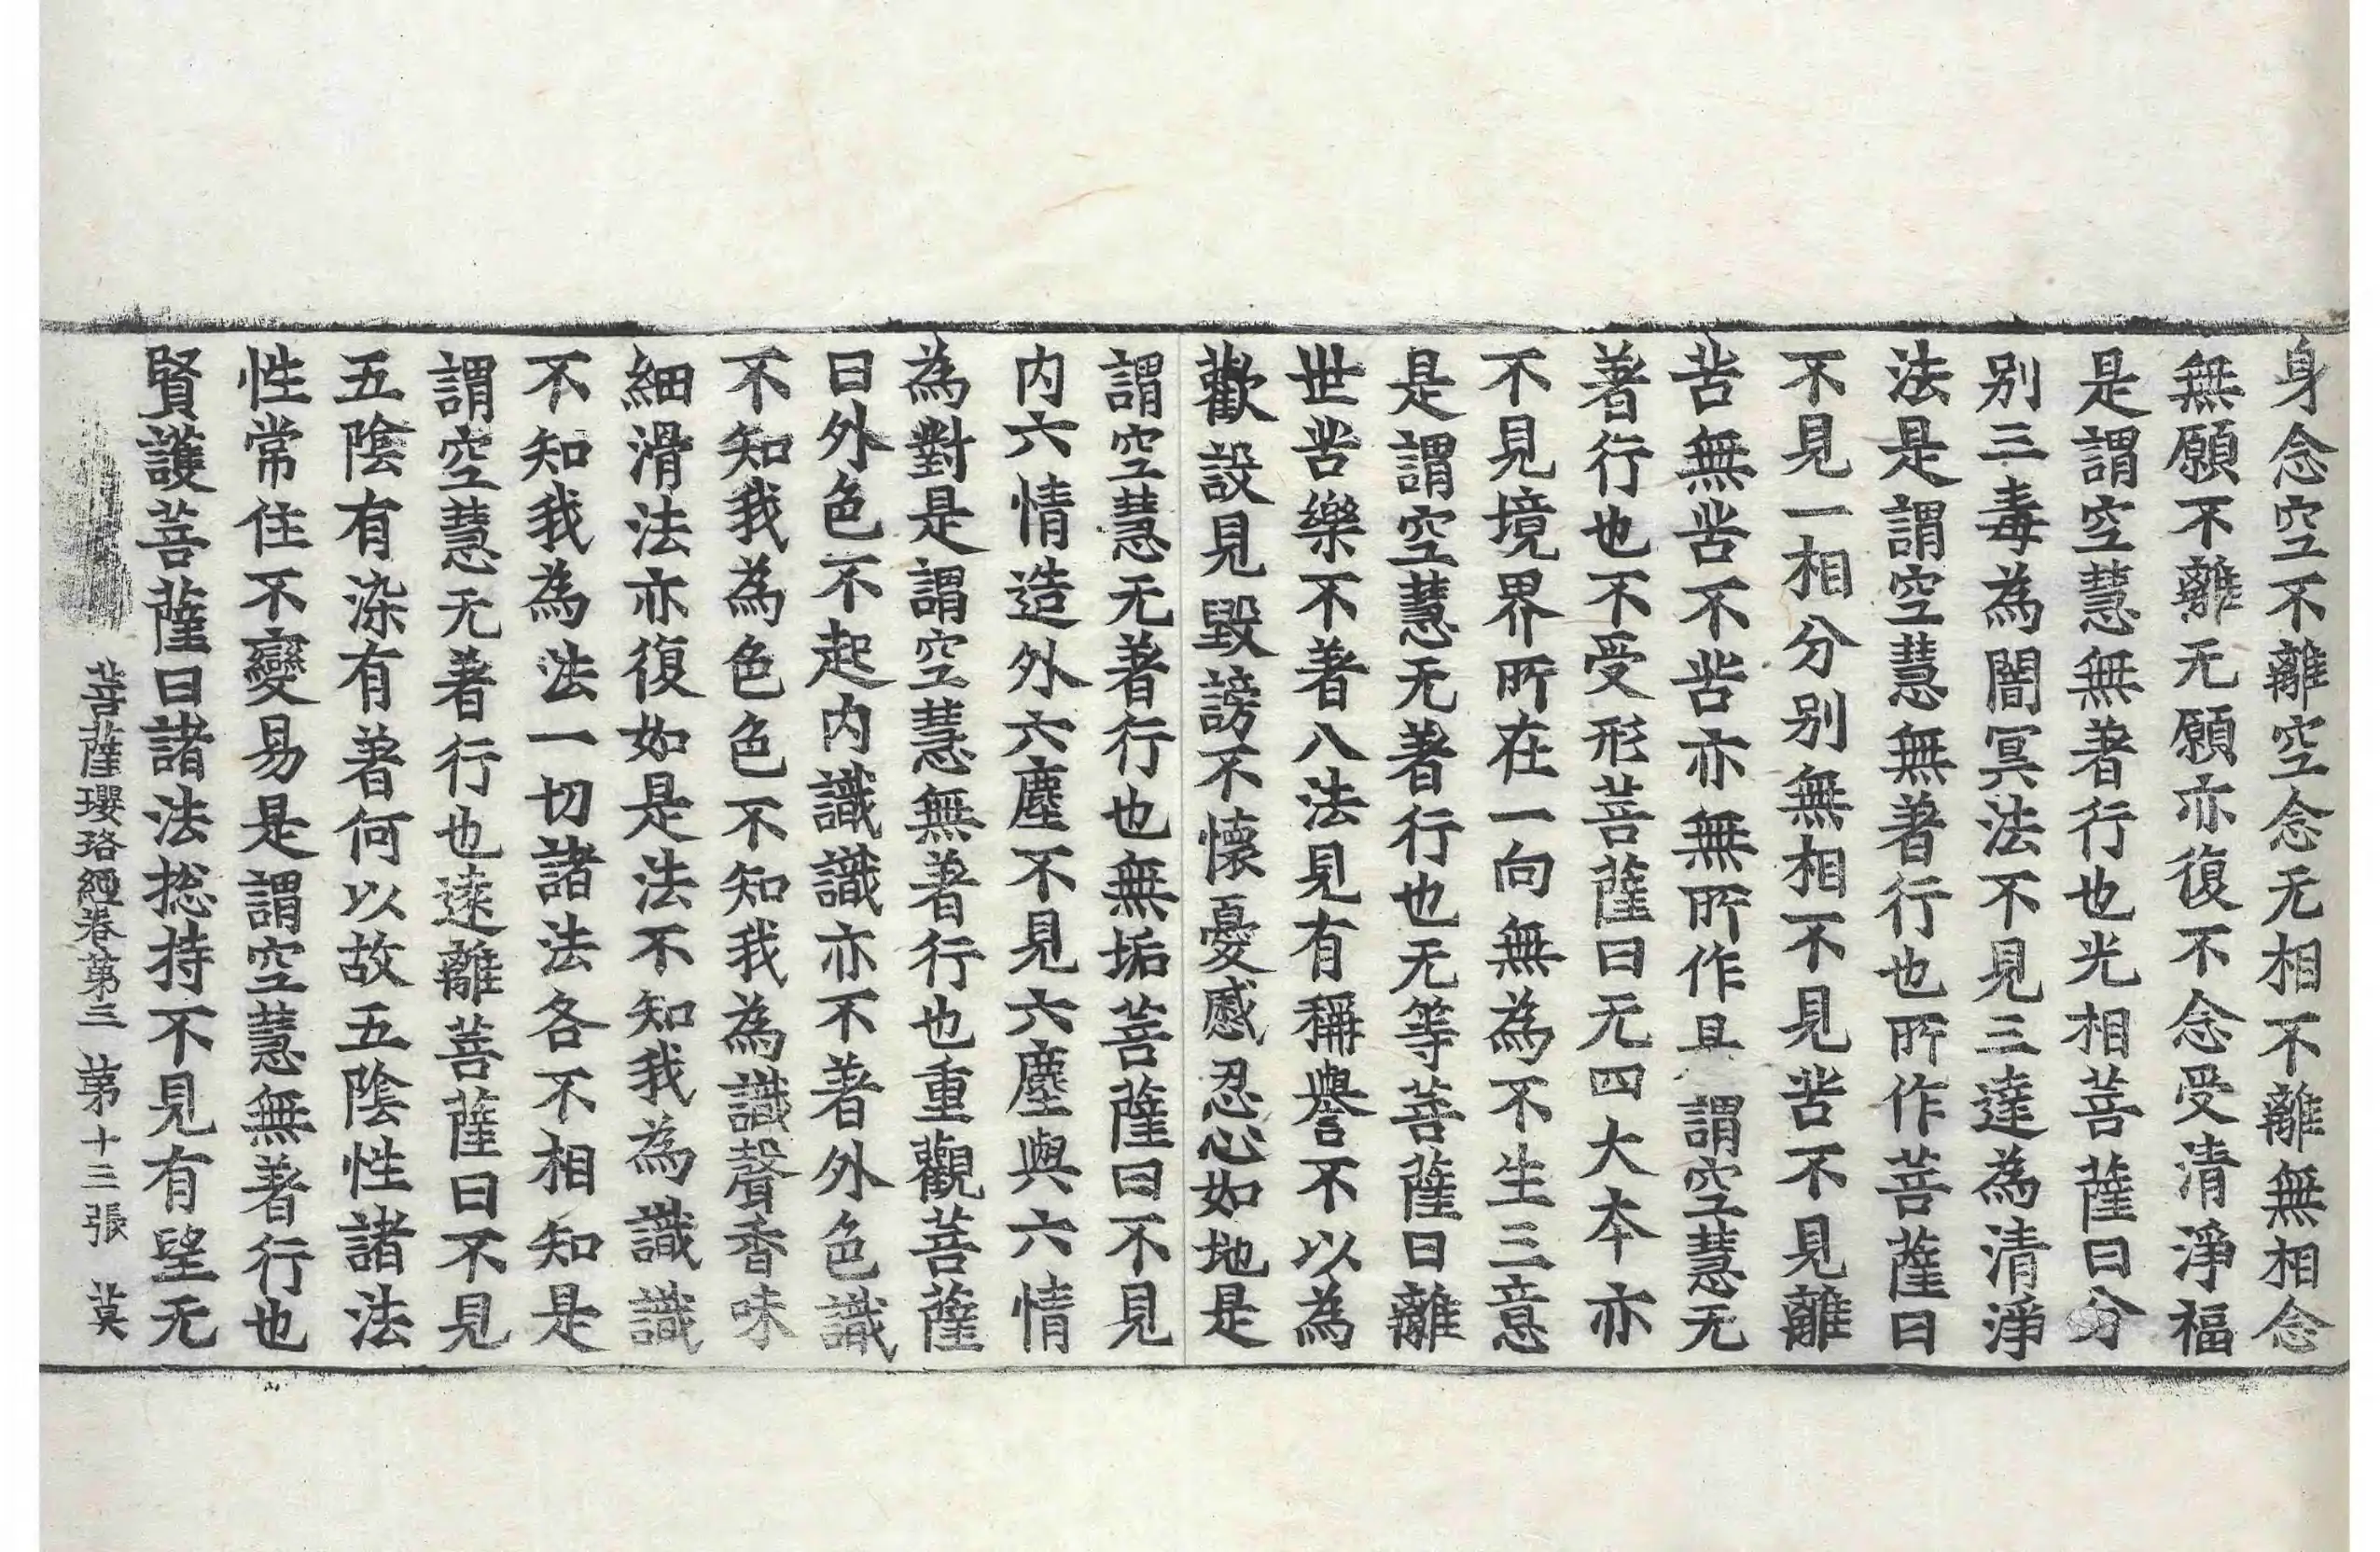 身念空不離空念无相不離無相念
無願不離无願亦復不念受清淨福
是謂空慧無著行也光相菩薩曰分
別三毒為闇冥法不見三達為清淨
法是謂空慧無著行也所作菩薩曰
不見一相分別無相不見苦不見離
苦無苦不苦亦無所作是謂空慧无
著行也不受形菩薩曰无四大本亦
不見境界所在一向無為不生三意
是謂空慧无著行也无等菩薩曰離
世苦樂不著八法見有稱譽不以為
歡設見毀謗不懷憂慼忍心如地是
謂空慧无著行也無垢菩薩曰不見
内六情造外六塵不見六塵與六情
為對是謂空慧無著行也重觀菩薩
曰外色不起内識識亦不著外色識
不知我為色色不知我為識聲香味
細滑法亦復如是法不知我為識識
不知我為法一切諸法各不相知是
謂空慧无著行也遠離菩薩曰不見
五陰有染有著何以故五陰性諸法
性常住不變易是謂空慧無著行也
賢護菩薩曰諸法捴持不見有望无
菩薩瓔珞經卷第三 第十三張 莫